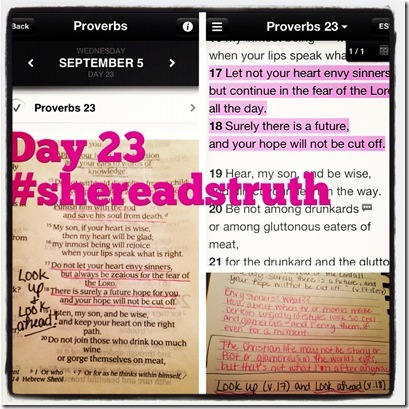 Back
Proverbs
WEDNESDAY
SEPTEMBER 5
DAY 23
Proverbs 23
Day 23
#shereadstruth
knowledge
Punish him with the rod
and save his soul from death.
15 My son, if your heart is wise,
then my heart will be glad;
16 my inmost being will rejoice
when your lips speak what is right.
17 Do not let your heart envy sinners,
but always be zealous for the fear of the
LORD.
18 There is surely a future hope for you,
and your hope will not be cut off.
Listen, my son, and be wise,
and keep your heart on the right
path.
20 Do not join those who drink too much
wine
or gorge themselves on meat,
Look
up
+
Look
ahead!
Or for as he thinks within himself,
Hebrew Sheol
Proverbs 23
when your lips speak what
1 / 1
17 Let not your heart envy sinners
but continue in the fear of the Lord
all the day.
18 Surely there is a future,
and your hope will not be cut off.
19 Hear, my son, and be wise,
in the way.
20 Be not among drunkards
or among gluttonous eaters of
meat,
21 for the drunkard and the glutto
your hope will not be cut off." (v.17-18)
Envy sinners? What?
The Christian life may not be
but that's what I'm after anyway
Look up (v.17) and Look ahead (v.18)